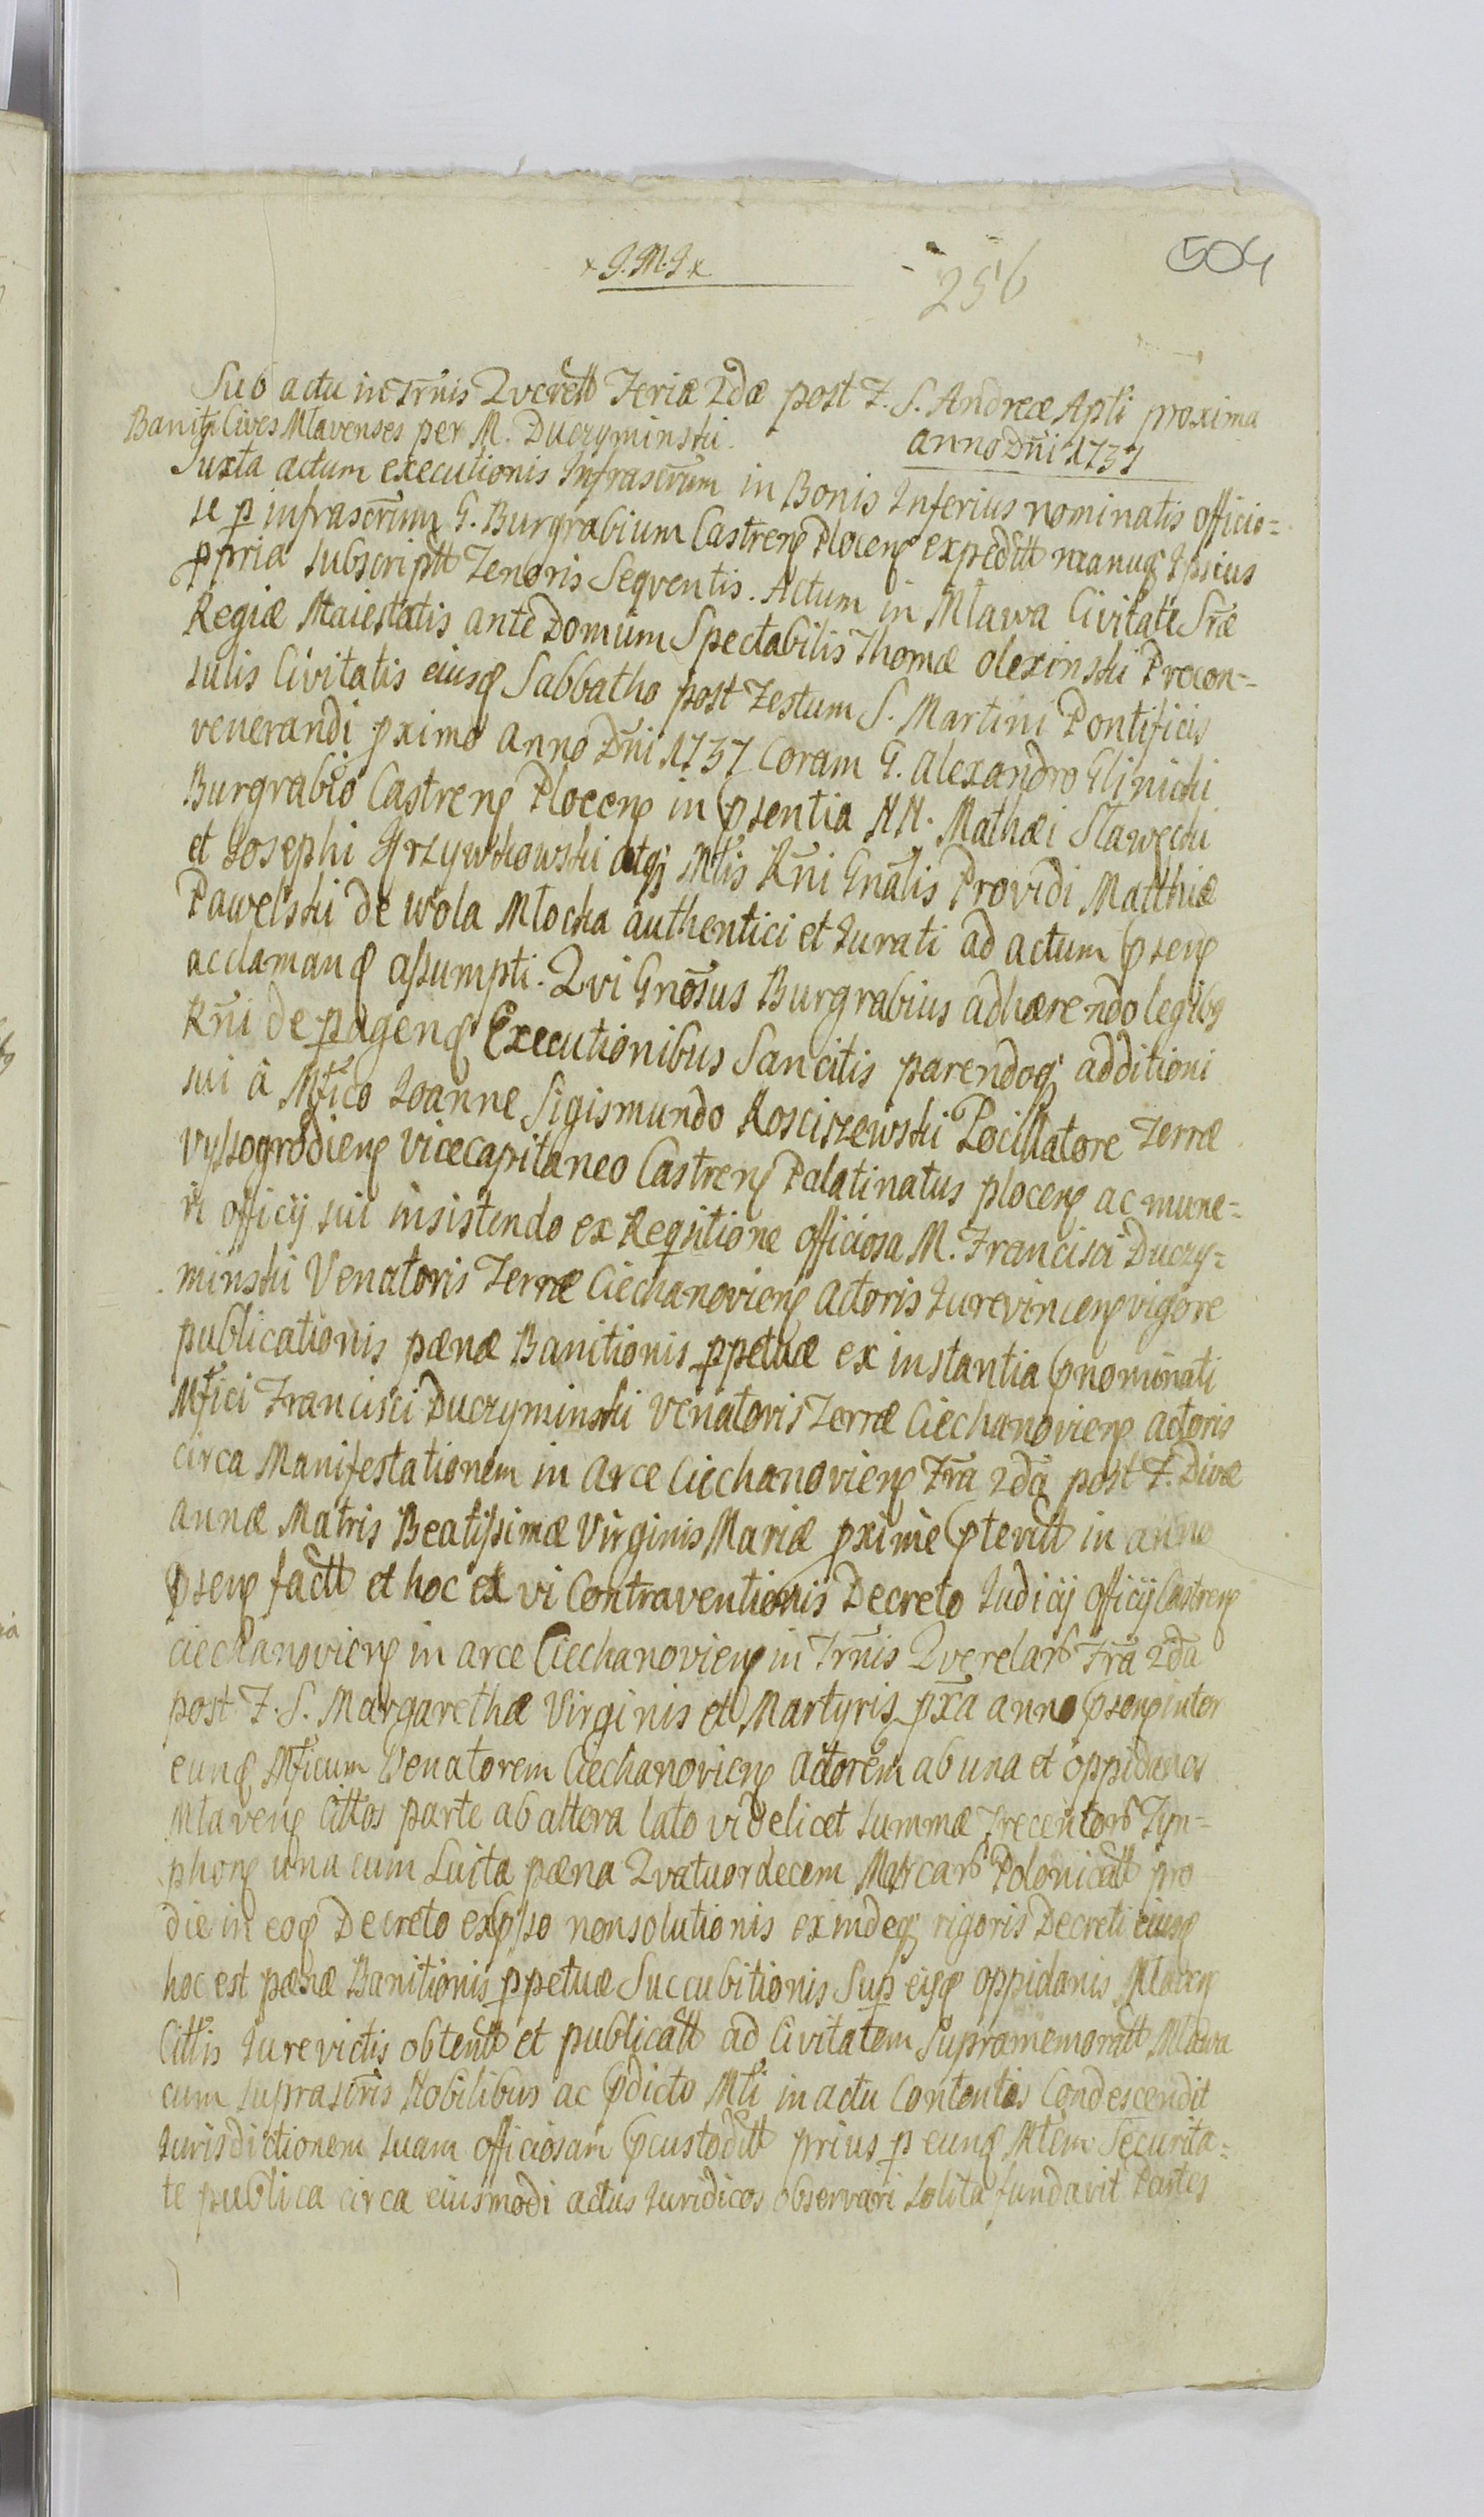 x J. M. J x
256
504
Sub actu in Trm̃is Querell Feriæ 2dæ post F. S. Andreæ Apli proxima
Banitℓ Cives Mlavenses per M. Duczyminski.
anno Dñi 1737
Iuxta actum executionis Infrascrum in Bonis Inferius nominatis officio=
se p infrascrum G. Burgrabium Castrenℓ Plocenℓ expeditt manuqꝫ Ipsius
ppria subscriptt Tenoris Sequentis. Actum in Mlawa Civitate Sræ
Regiæ Maiestatis ante Domum Spectabilis Thomæ Olexinski Procon=
sulis Civitatis eiusℓ Sabbatho post Festum S. Martini Pontificis
venerandi pximo Anno Dñi 1737 Coram G. Alexandro Glinicki
Burgrabio Castrenℓ Plocenℓ in Psentia NN. Mathæi Stawecki
et Iosephi Grzywkowski atqꝫ Mtlis Rñi Gñalis Providi Matthiæ
Pawelski de Wola Mlocka authentici et Iurati ad actum Psenℓ
acclamanℓ assumpti. Qui Gnõsus Burgrabius adhærendo legibꝫ
Rñi de pagenℓ Executionibus Sancitis parendoqꝫ additioni
sui à Mfico Ioanne Sigismundo Kosciszewski Pocillatore Terræ
Vyssogrodienℓ Vicecapitaneo Castrenℓ Palatinatus plocenℓ ac mune=
ri officij sui insistendo ex Reqsitione officiosa M. Francisci Duczy=
minski Venatoris Terræ Ciechanovienℓ Actoris Iurevincenℓ vigore
publicationis pænæ Banitionis ppetuæ ex instantia Pnominati
Mfici Francisci Duczyminski Venatoris Terræ Ciechanovienℓ actoris
circa Manifestationem in Arce Ciechanovienℓ Fra 2da post F. Divæ
Annæ Matris Beatissimæ Virginis Mariæ pxime Pteritt in anno
Psenℓ factt et hoc ex vi Contraventionis Decreto Iudicij officij Castrenℓ
Ciechanovienℓ in arce Ciechanovienℓ in Trm̃is Querelarꝫ Fra 2da
post F. S. Margarethæ Virginis et Martyris pxa anno Psenℓ inter
eunℓ Mficum Venatorem Ciechanovienℓ Actorem ab una et oppidanos
Mlavenℓ Cittos parte ab altera lato videlicet summæ Trecentorꝫ Tyn=
phonℓ una cum Luita pæna Quatuordecem Marcarꝫ Polonicall pro
die in eoℓ Decreto exPsso nonsolutionis exindeqꝫ rigoris Decreti eiusℓ
hoc est pænæ Banitionis ppetuæ Succubitionis Sup eisℓ oppidanis Mlavenℓ
Cittis Iurevictis obtentt et publicatt ad Civitatem Supramemoratt Mlawa
cum suprascris Nobilibus ac Pdicto Mtli in actu Contentis Condescendit
Iurisdictionem suam officiosam Pcustoditt prius p eunℓ Mtlem Securita=
te publica circa eiusmodi actus Iuridicos observari solita fundavit Partes